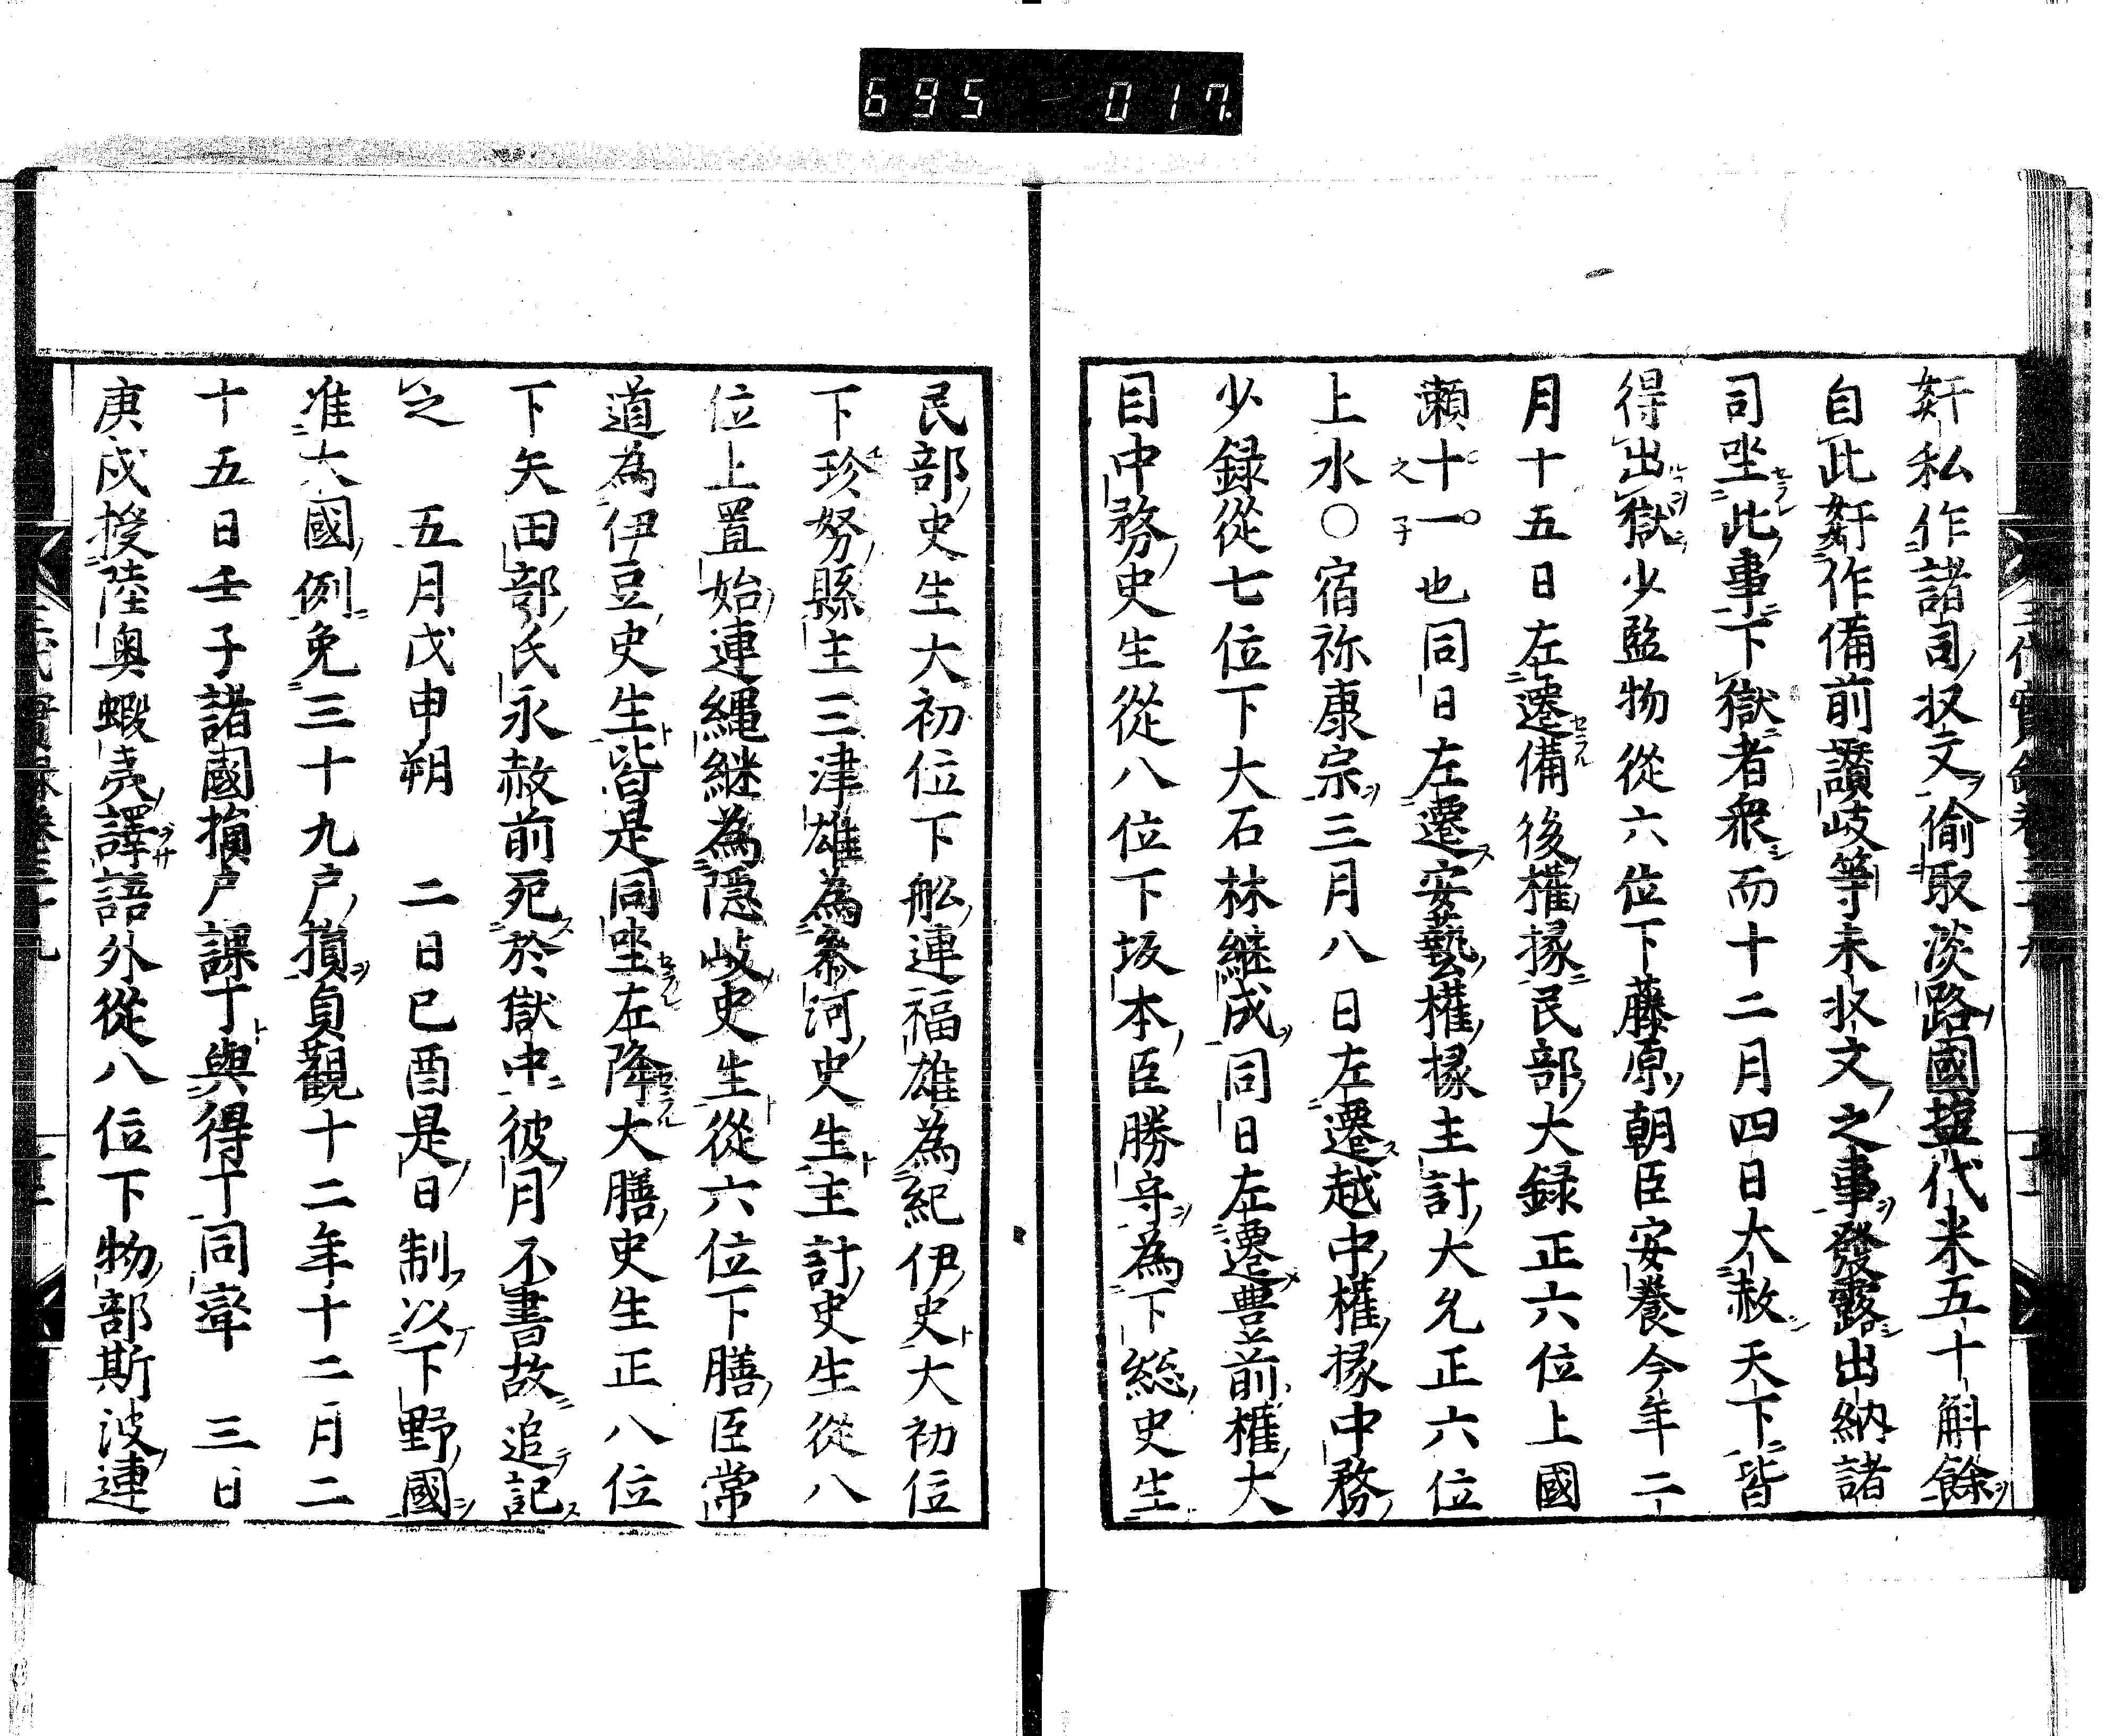 695-017.
奸私作諸司収文偷取淡路國塩代米五十斛餘
自此奸作備前讃岐等未収文之事發露出納諸
司坐此事下獄者衆而十二月四日大赦天下皆
得出獄少監物從六位下藤原朝臣安養今年二
月十五日左遷備後權掾民部大録正六位上國
瀬十一也同日左遷安藝權掾主計大允正六位
上水○宿祢康宗三月八日左遷越中權掾中務
少録從七位下大石林継成同日左遷豊前權大
目中務史生從八位下坂本臣勝守為下総史生
民部史生大初位下舩連福雄為紀伊史大初位
下珍努縣主三津雄為參河史生主計史生從八
位上置始連縄継為隠岐史生從六位下膳臣常
道為伊豆史生皆是同坐左降大膳史生正八位
下矢田部氏永赦前死於獄中彼月不書故追記
之　五月戊申朔　二日己酉是日制以下野國
准大國例免三十九戸損貞觀十二年十二月二
十五日壬子諸國損戸課丁與得丁同率　三日
庚戌授陸奥蝦夷譯語外從八位下物部斯波連